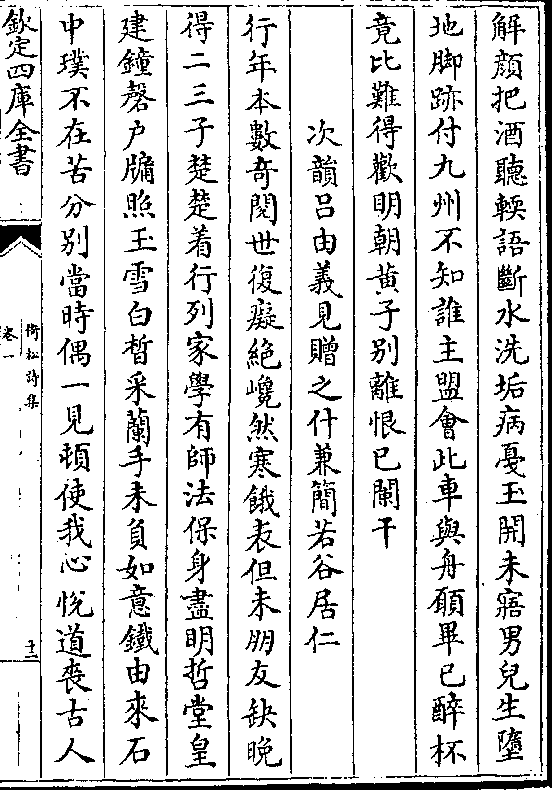 解顔把酒聽輭語斷水洗垢病憂玉開未寤男兒生墮
地脚跡付九州不知誰主盟會此車與舟願畢已醉杯
竟比難得歡明朝黄子别離恨已闌干
次韻吕由義見贈之什兼簡若谷居仁
行年本數奇閱世復癡絶巉然寒餓表但未朋友缺晩
得二三子楚楚着行列家學有師法保身盡明哲堂皇
建鐘磬户牖照玉雪白晳采蘭手未負如意鐵由來石
中璞不在苦分别當時偶一見頓使我心悦道喪古人
欽定四庫全書
卷一
十二